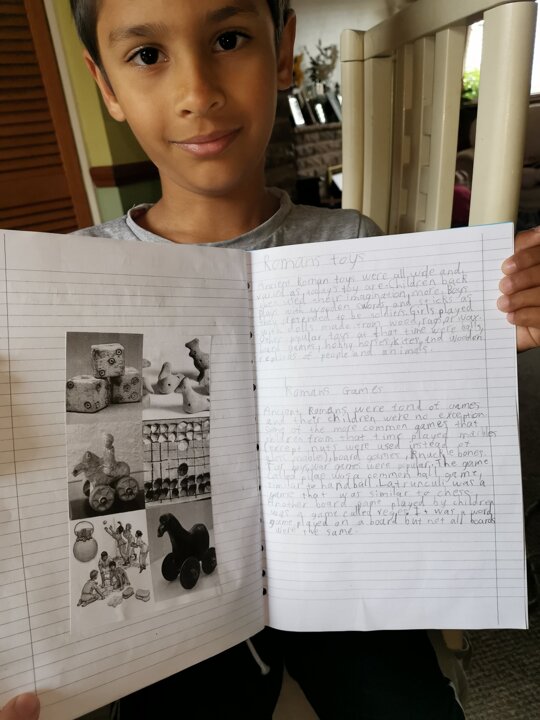 Romans toys
Ancient Roman toys were all wide and
varied as today toy are. Children back
used their imagination more. Boys
plays with wooden swords and sticks as
pretended to be soldiers. Girls played
with dolls made from wood, rags, or wax.
Other popular toys at that time were balls,
and swings, hobby horses, kites, and wooden
replicas of people and animals
Romans Games
Ancient Romans were fond of games
and their children were no exception
one of the more common games that
children from that time played marbles
(except nuts were used instead of
marbles), board games, knuckle bones.
For boys, war games were popular. The game
called pilae was a common ball game,
similar to handball. Latrunculi was a
game that was similar to chess.
Another board game played by children
was a game called reges. It was a word
game played on a board but not all boards
were the same.